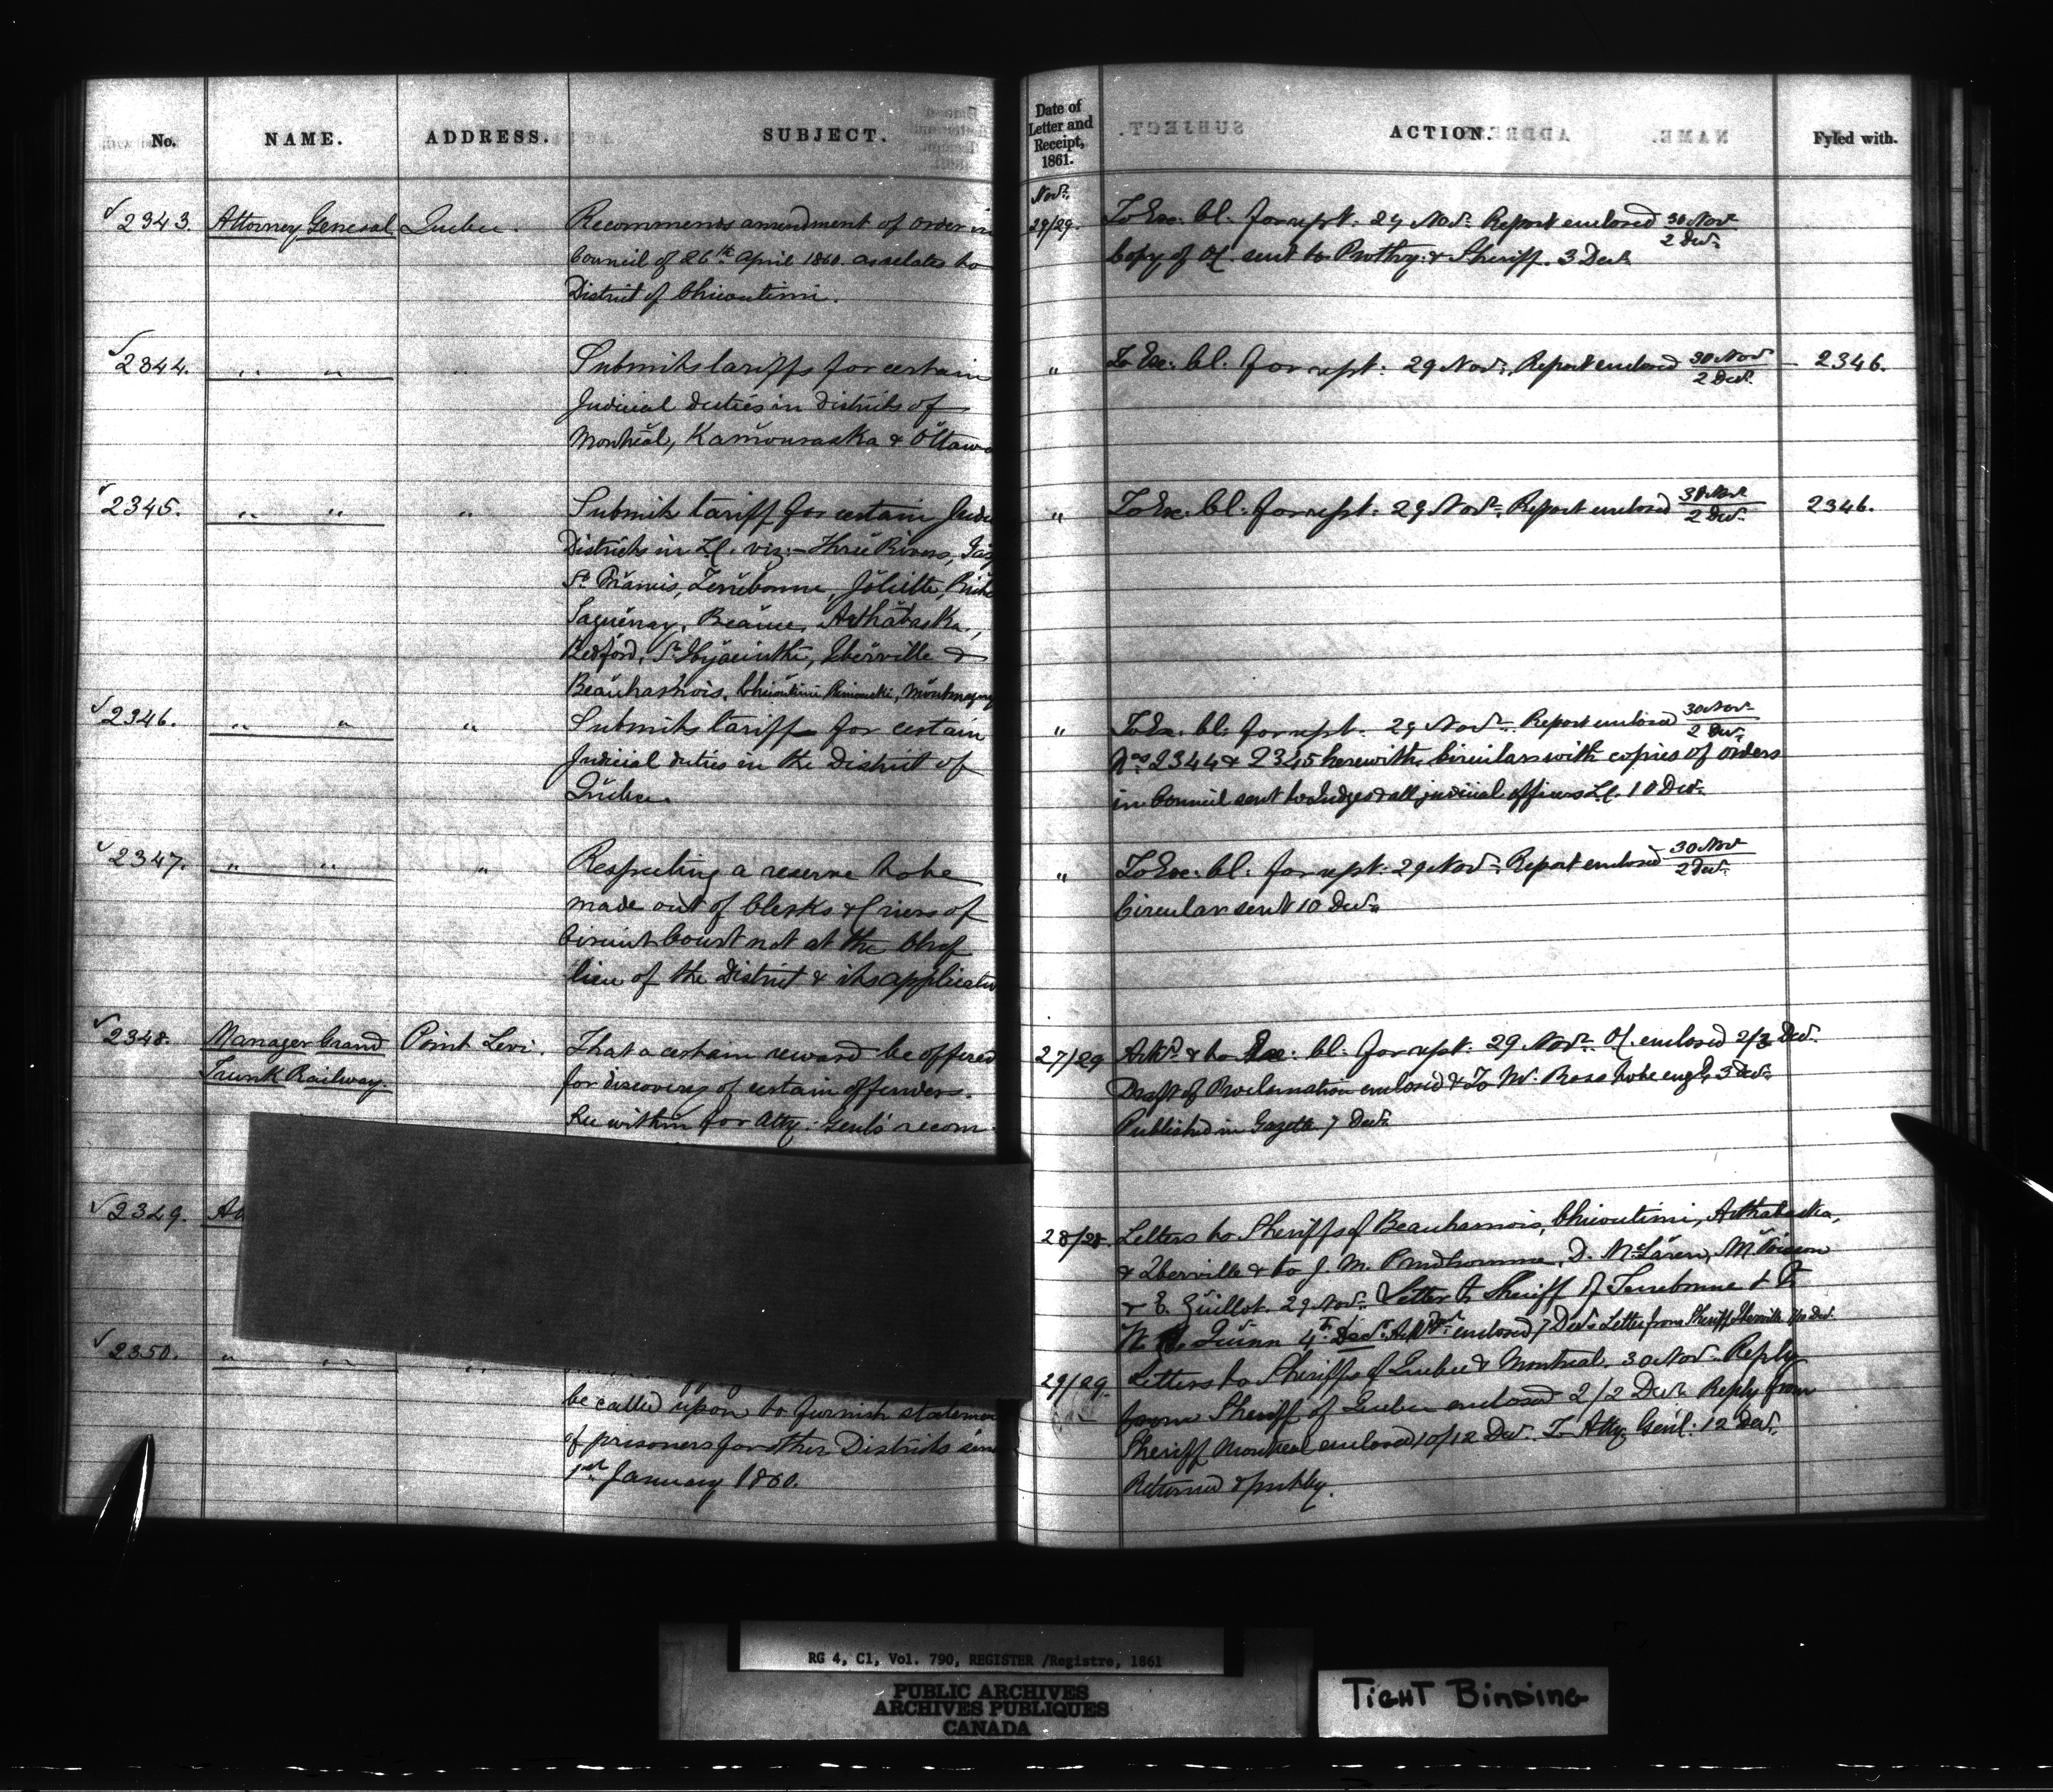 No. NAME. ADDRESS. SUBJECT.
2343. Attorney General Quebec. Recommends amendment of order in
Council of 26th April 1860. as relates to
District of Chicoutimi.
2344. " " " Submits tariffs for certain
Judicial duties in districts of
Montreal, Kamouraska & Ottawa
2345. " " " Submits tariff for certain
Districts in L.C. viz:- Three Rivers,
St. Francis, Terrebonne, Joliette,
Saguenay, Beauce, Arthabaska,
Bedford, St. Hyacinthe, Iberville &
Beauharnois, Chicoutimi, Rimouski, Montmagny
2346. " " " Submits tariff for certain
Judicial duties in the District of
Quebec.
2347. " " " Respecting a reserve to be
made out of Clerks & Criers of
Circuit Court not at the Chef
lieu of the District & its
2348. Manager Grand Point Levi. That a certain reward be offered
Trunk Railway. for discovery of certain offenders.
See within for Atty. Genl's recom
2349.
2350. " " "
be called upon to furnish
of prisoners for other Districts
1st January 1860.
Date of
Letter and
Receipt,
1861.
ACTION. Fyled with.
Novr.
29/29. To Exe. Cl. for rept. 29 Novr. Report enclosed 30 Novr
2 Decr.
Copy of OC. sent to Prothy. & Sheriff. 3 Decr.
" To Exe. Cl. for rept. 29 Novr. Report enclosed 30 Novr 2346.
2 Decr.
" To Exe. Cl. for rept. 29 Novr. Report enclosed 30 Novr 2346.
2 Decr.
" To Exe. Cl. for rept. 29 Novr. Report enclosed 30 Novr
2 Decr.
Nos. 2344 & 2345 herewith. Circulars with copies of orders
in Council sent to Judges & all judicial officers L.C. 10 Decr.
" To Exe. Cl. for rept. 29 Novr. Report enclosed 30 Novr
2 Decr.
Circular sent 10 Decr.
27/29 Ackd. & to Exe. Cl. for rept. 29 Novr. OC. enclosed 2/3 Decr.
Draft of Proclamation enclosed & To Mr. Rose to be engd. 3 Decr.
Published in Gazette 7 Decr.
28/28. Letters to Sheriffs of Beauharnois, Chicoutimi, Arthabaska,
& Iberville & to J. M. Prudhomme, D. McLaren,
& E. Guillot. 29 Novr. Letter to Sheriff of Terrebonne &
Quinn 4th. Decr. enclosed 7 Decr. Letter from Sheriff Iberville
29/29. Letters to Sheriffs of Quebec & Montreal. 30 Novr. Reply
from Sheriff of Quebec enclosed 2/2 Decr. Reply from
Sheriff Montreal enclosed 10/12 Decr. To Atty. Genl. 12 Decr.
Returned
RG 4, C1, Vol. 790, REGISTER /Registre, 1861
PUBLIC ARCHIVES
ARCHIVES PUBLIQUES
CANADA
TIGHT BINDING